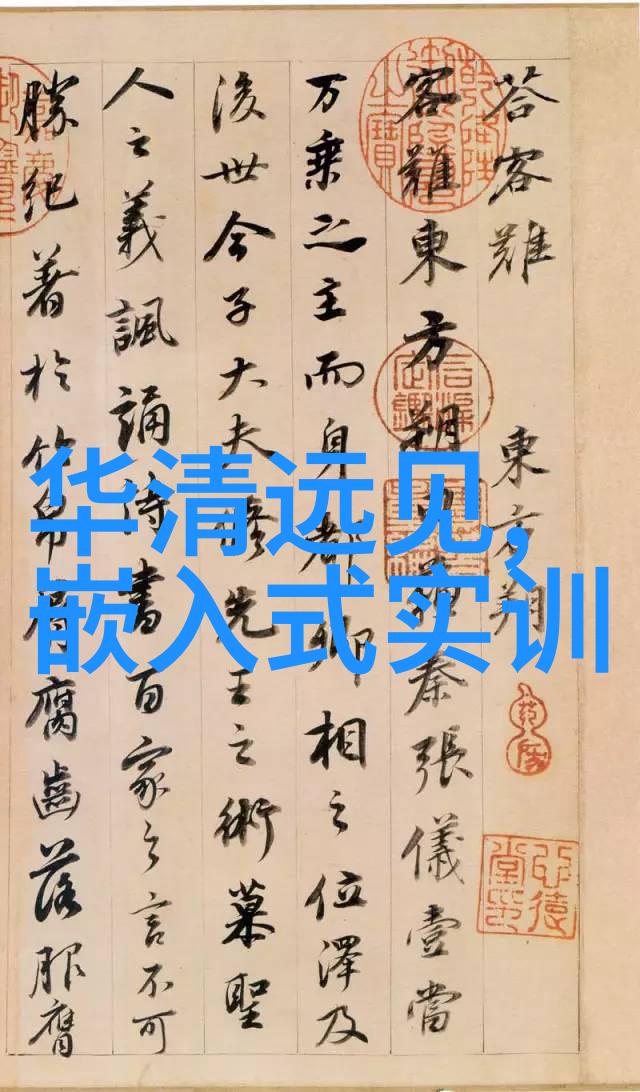 华清远见,
嵌入式实训
荅客難 東方朔
客難東方朔曰蘇秦張儀壹當
万乗之主而身都卿相之位澤及
後世今子大夫脩先王之術慕聖
人之義諷誦詩書百家之言不可
勝紀著於竹帛脣腐齒落服膺